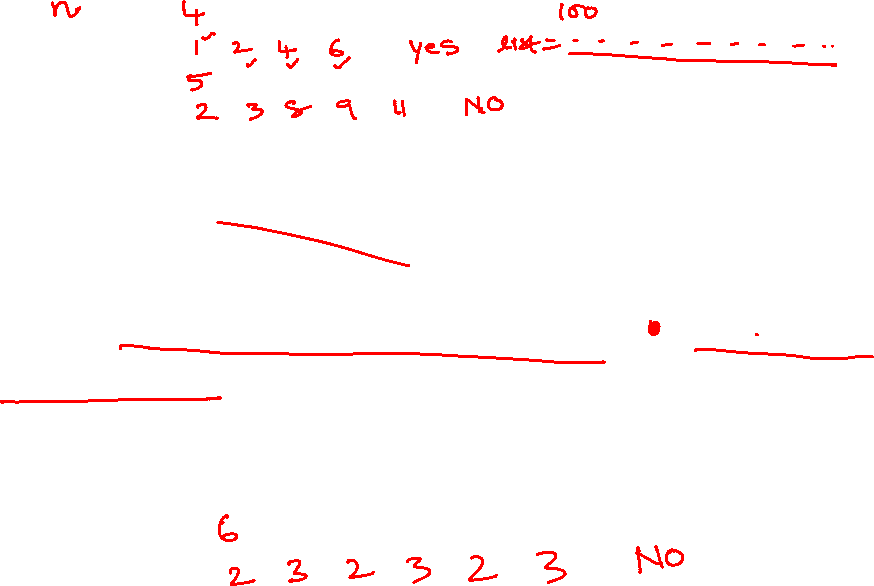 n 4 100
1 2 4 6 yes list =
5
2 3 8 9 11 NO
6
2 3 2 3 2 3 NO